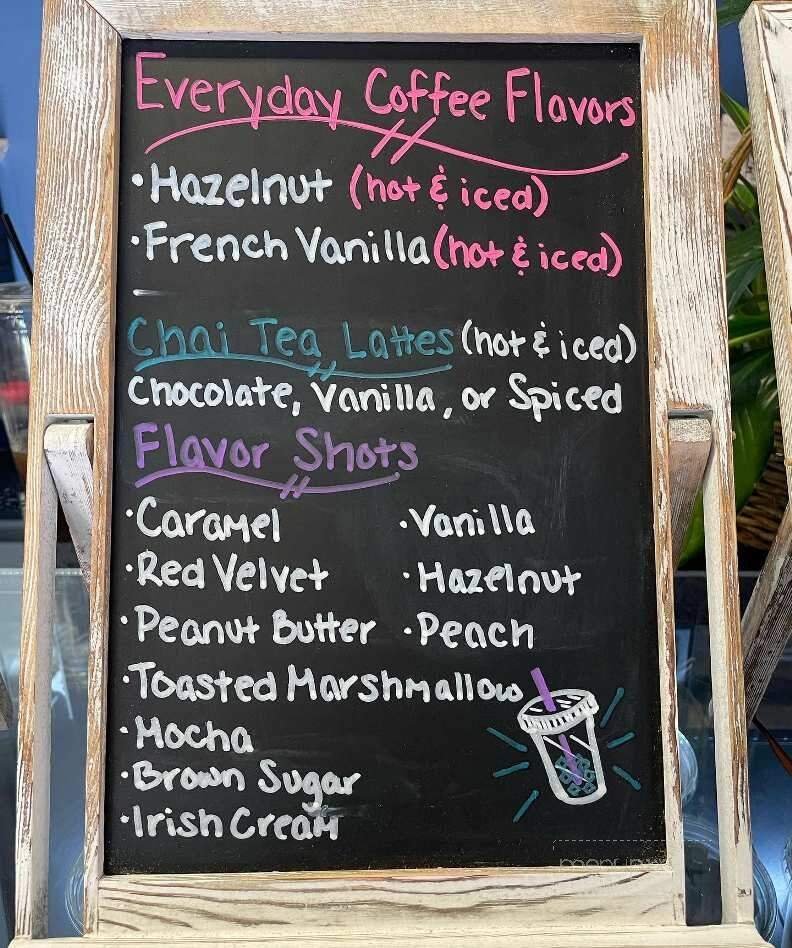 Everyday Coffee Flavors
•Hazelnut (hot & iced)
•French Vanilla (hot & iced)
Chai Tea Lattes (hot & iced)
Chocolate, Vanilla, or Spiced
Flavor Shots
•Caramel •Vanilla
•Red Velvet •Hazelnut
•Peanut Butter •Peach
•Toasted Marshmallow
•Mocha
•Brown Sugar
•Irish Cream